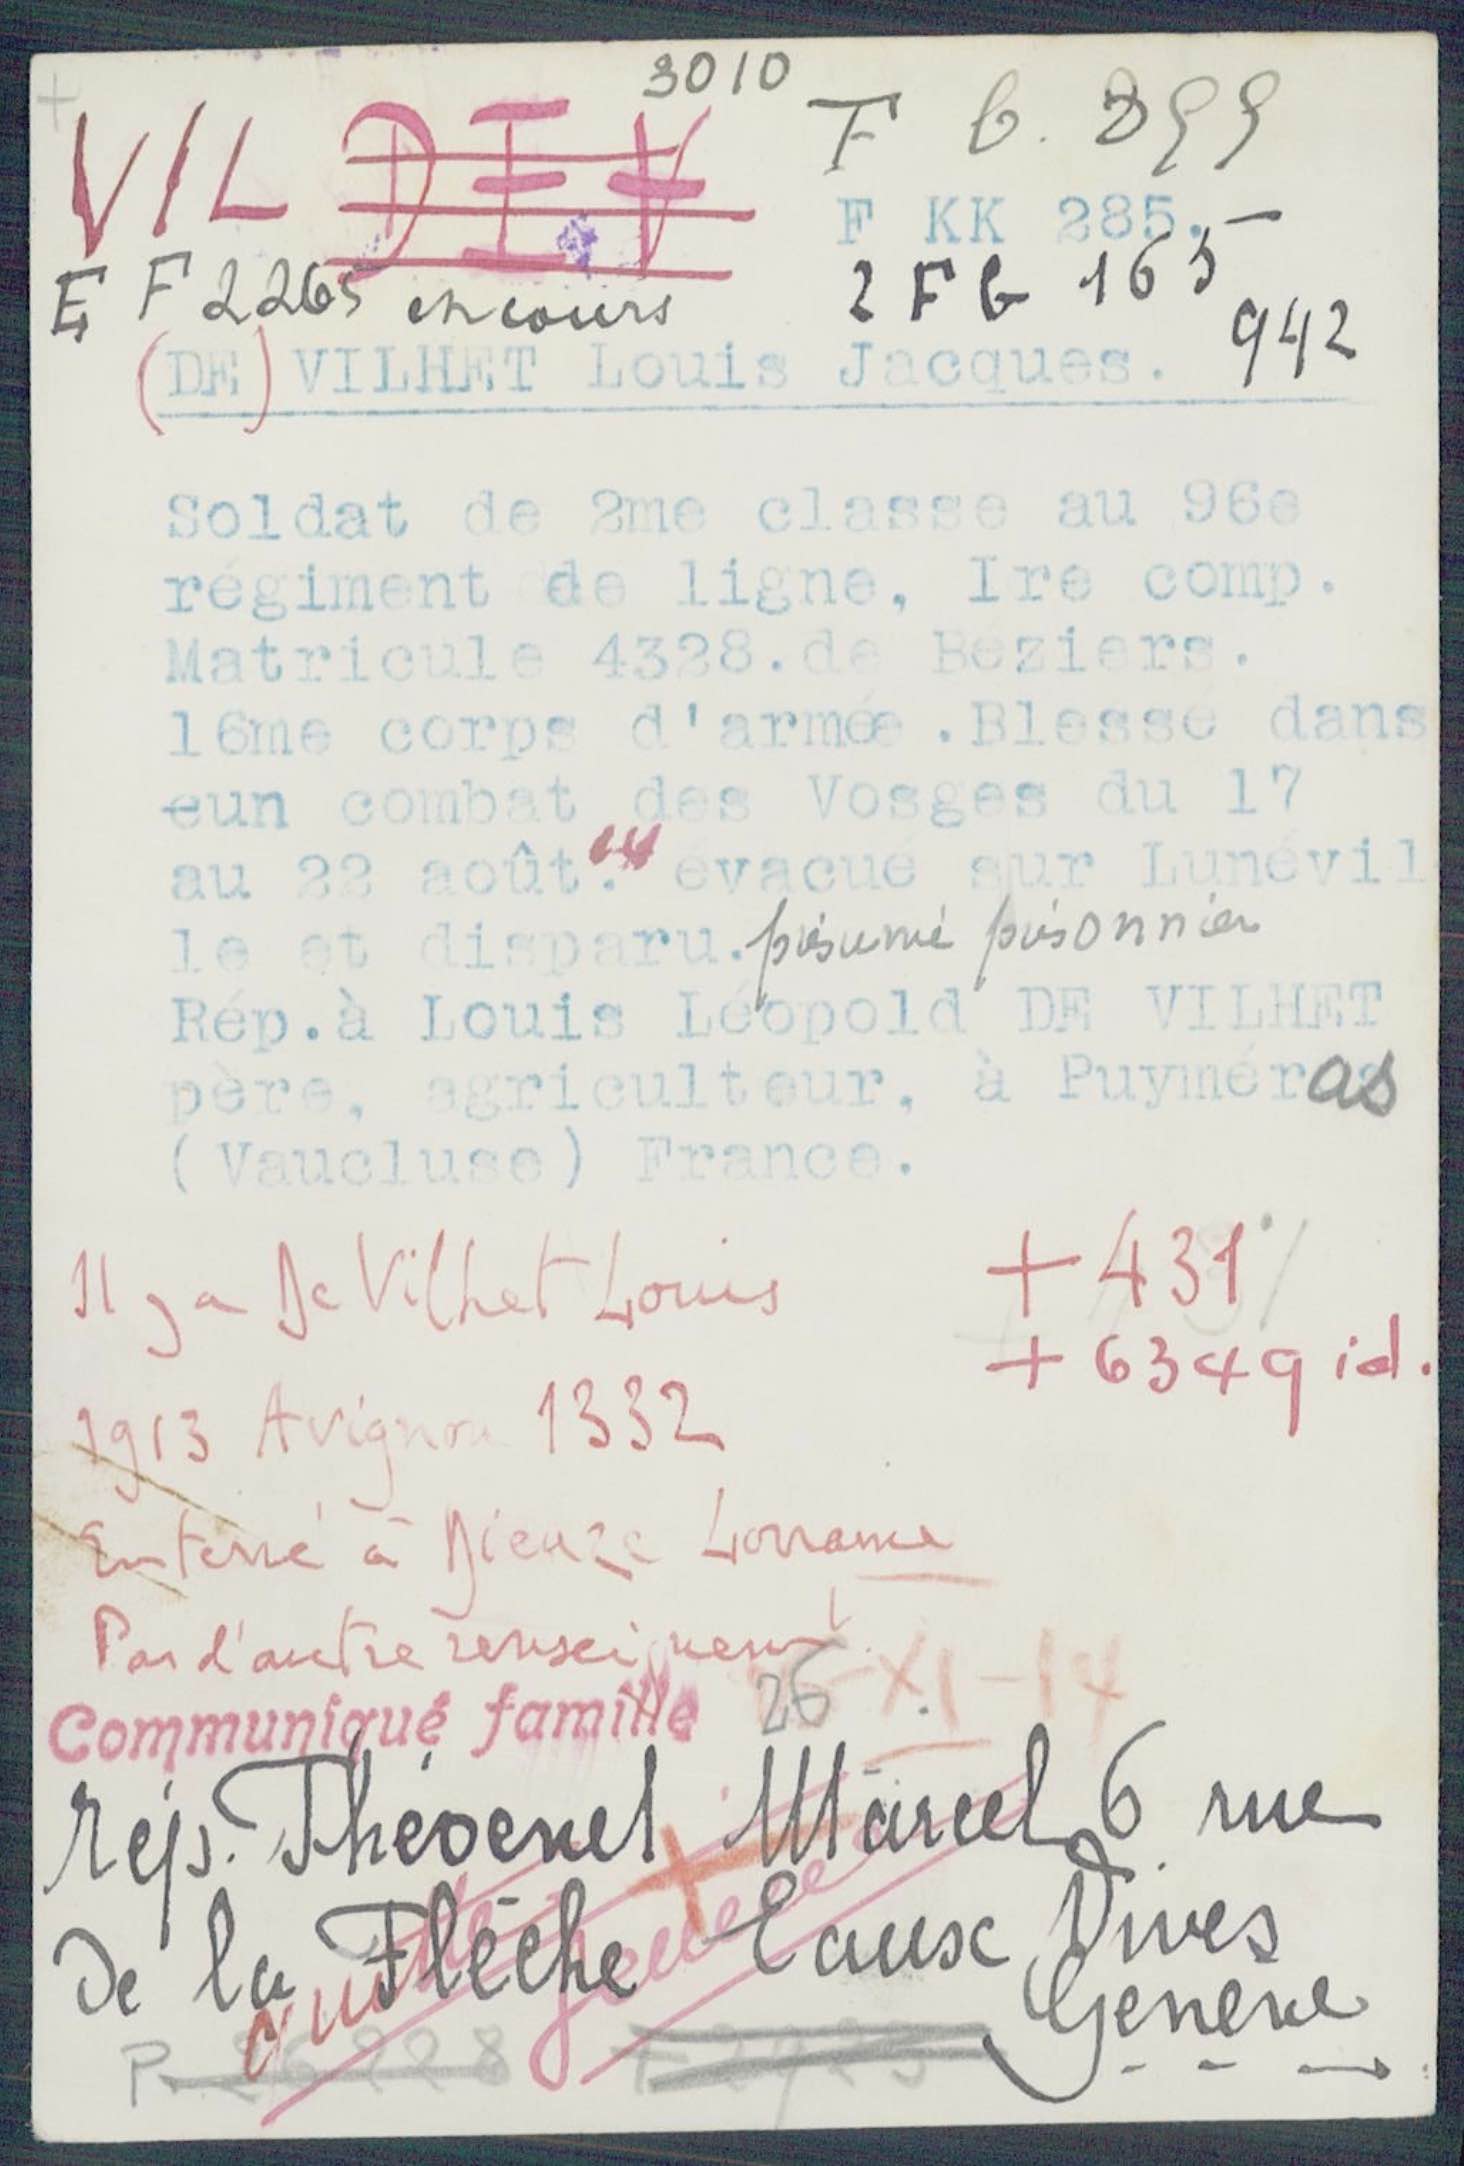 3010
VIL DEV
F b. 899
F KK 285.
E F 2265 en cours
2 F G 165
942
(DE) VILHET Louis Jacques.
Soldat de 2me classe au 96e
régiment de ligne, Ire comp.
Matricule 4328.de Béziers.
16me corps d'armée.Blessé dans
eun combat des Vosges du 17
au 22 août. évacué sur Lunévil
le et disparu. présumé prisonnier
Rép.à Louis Léopold DE VILHET
père, agriculteur, à Puyméras
(Vaucluse) France.
Il y a De Vilhet Louis
+ 431
+ 6349 id.
1913 Avignon 1332
Enterré à Dieuze Lorraine
Pas d'autre renseignement
Communiqué famille 26-XI-14
rép. Thévenel Marcel 6 rue
de la Flèche Eaux Vives
Genève
P. 26228 F 2923